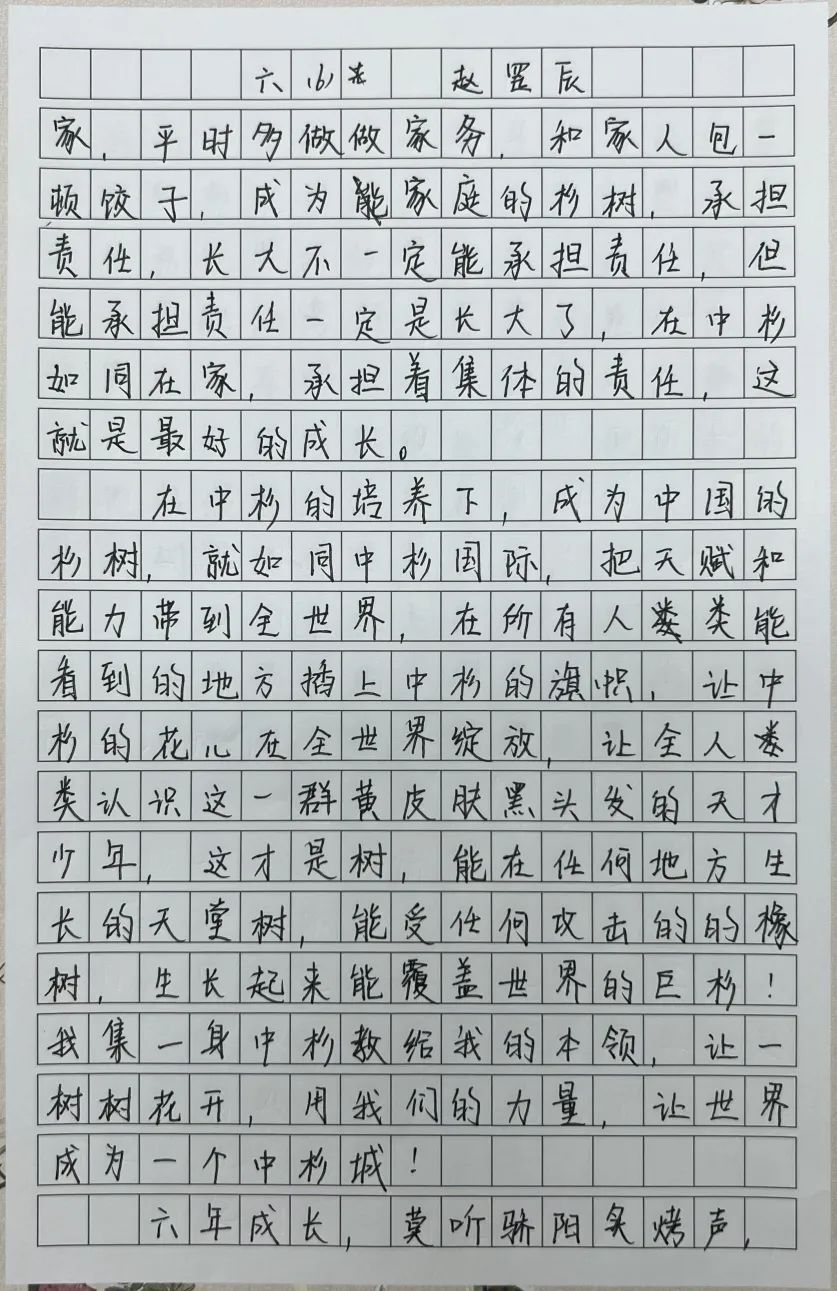 六(6)班 赵罡辰
家，平时多做做家务，和家人包一
顿饺子，成为能家庭的杉树，承担
责任，长大不一定能承担责任，但
能承担责任一定是长大了，在中杉
如同在家，承担着集体的责任，这
就是最好的成长。
在中杉的培养下，成为中国的
杉树，就如同中杉国际，把天赋和
能力带到全世界，在所有人类能
看到的地方插上中杉的旗帜，让中
杉的花儿在全世界绽放，让全人
类认识这一群黄皮肤黑头发的天才
少年，这才是树，能在任何地方生
长的天堂树，能受任何攻击的的橡
树，生长起来能覆盖世界的巨杉！
我集一身中杉教给我的本领，让一
树树花开，用我们的力量，让世界
成为一个中杉城！
六年成长，莫听骄阳炙烤声，